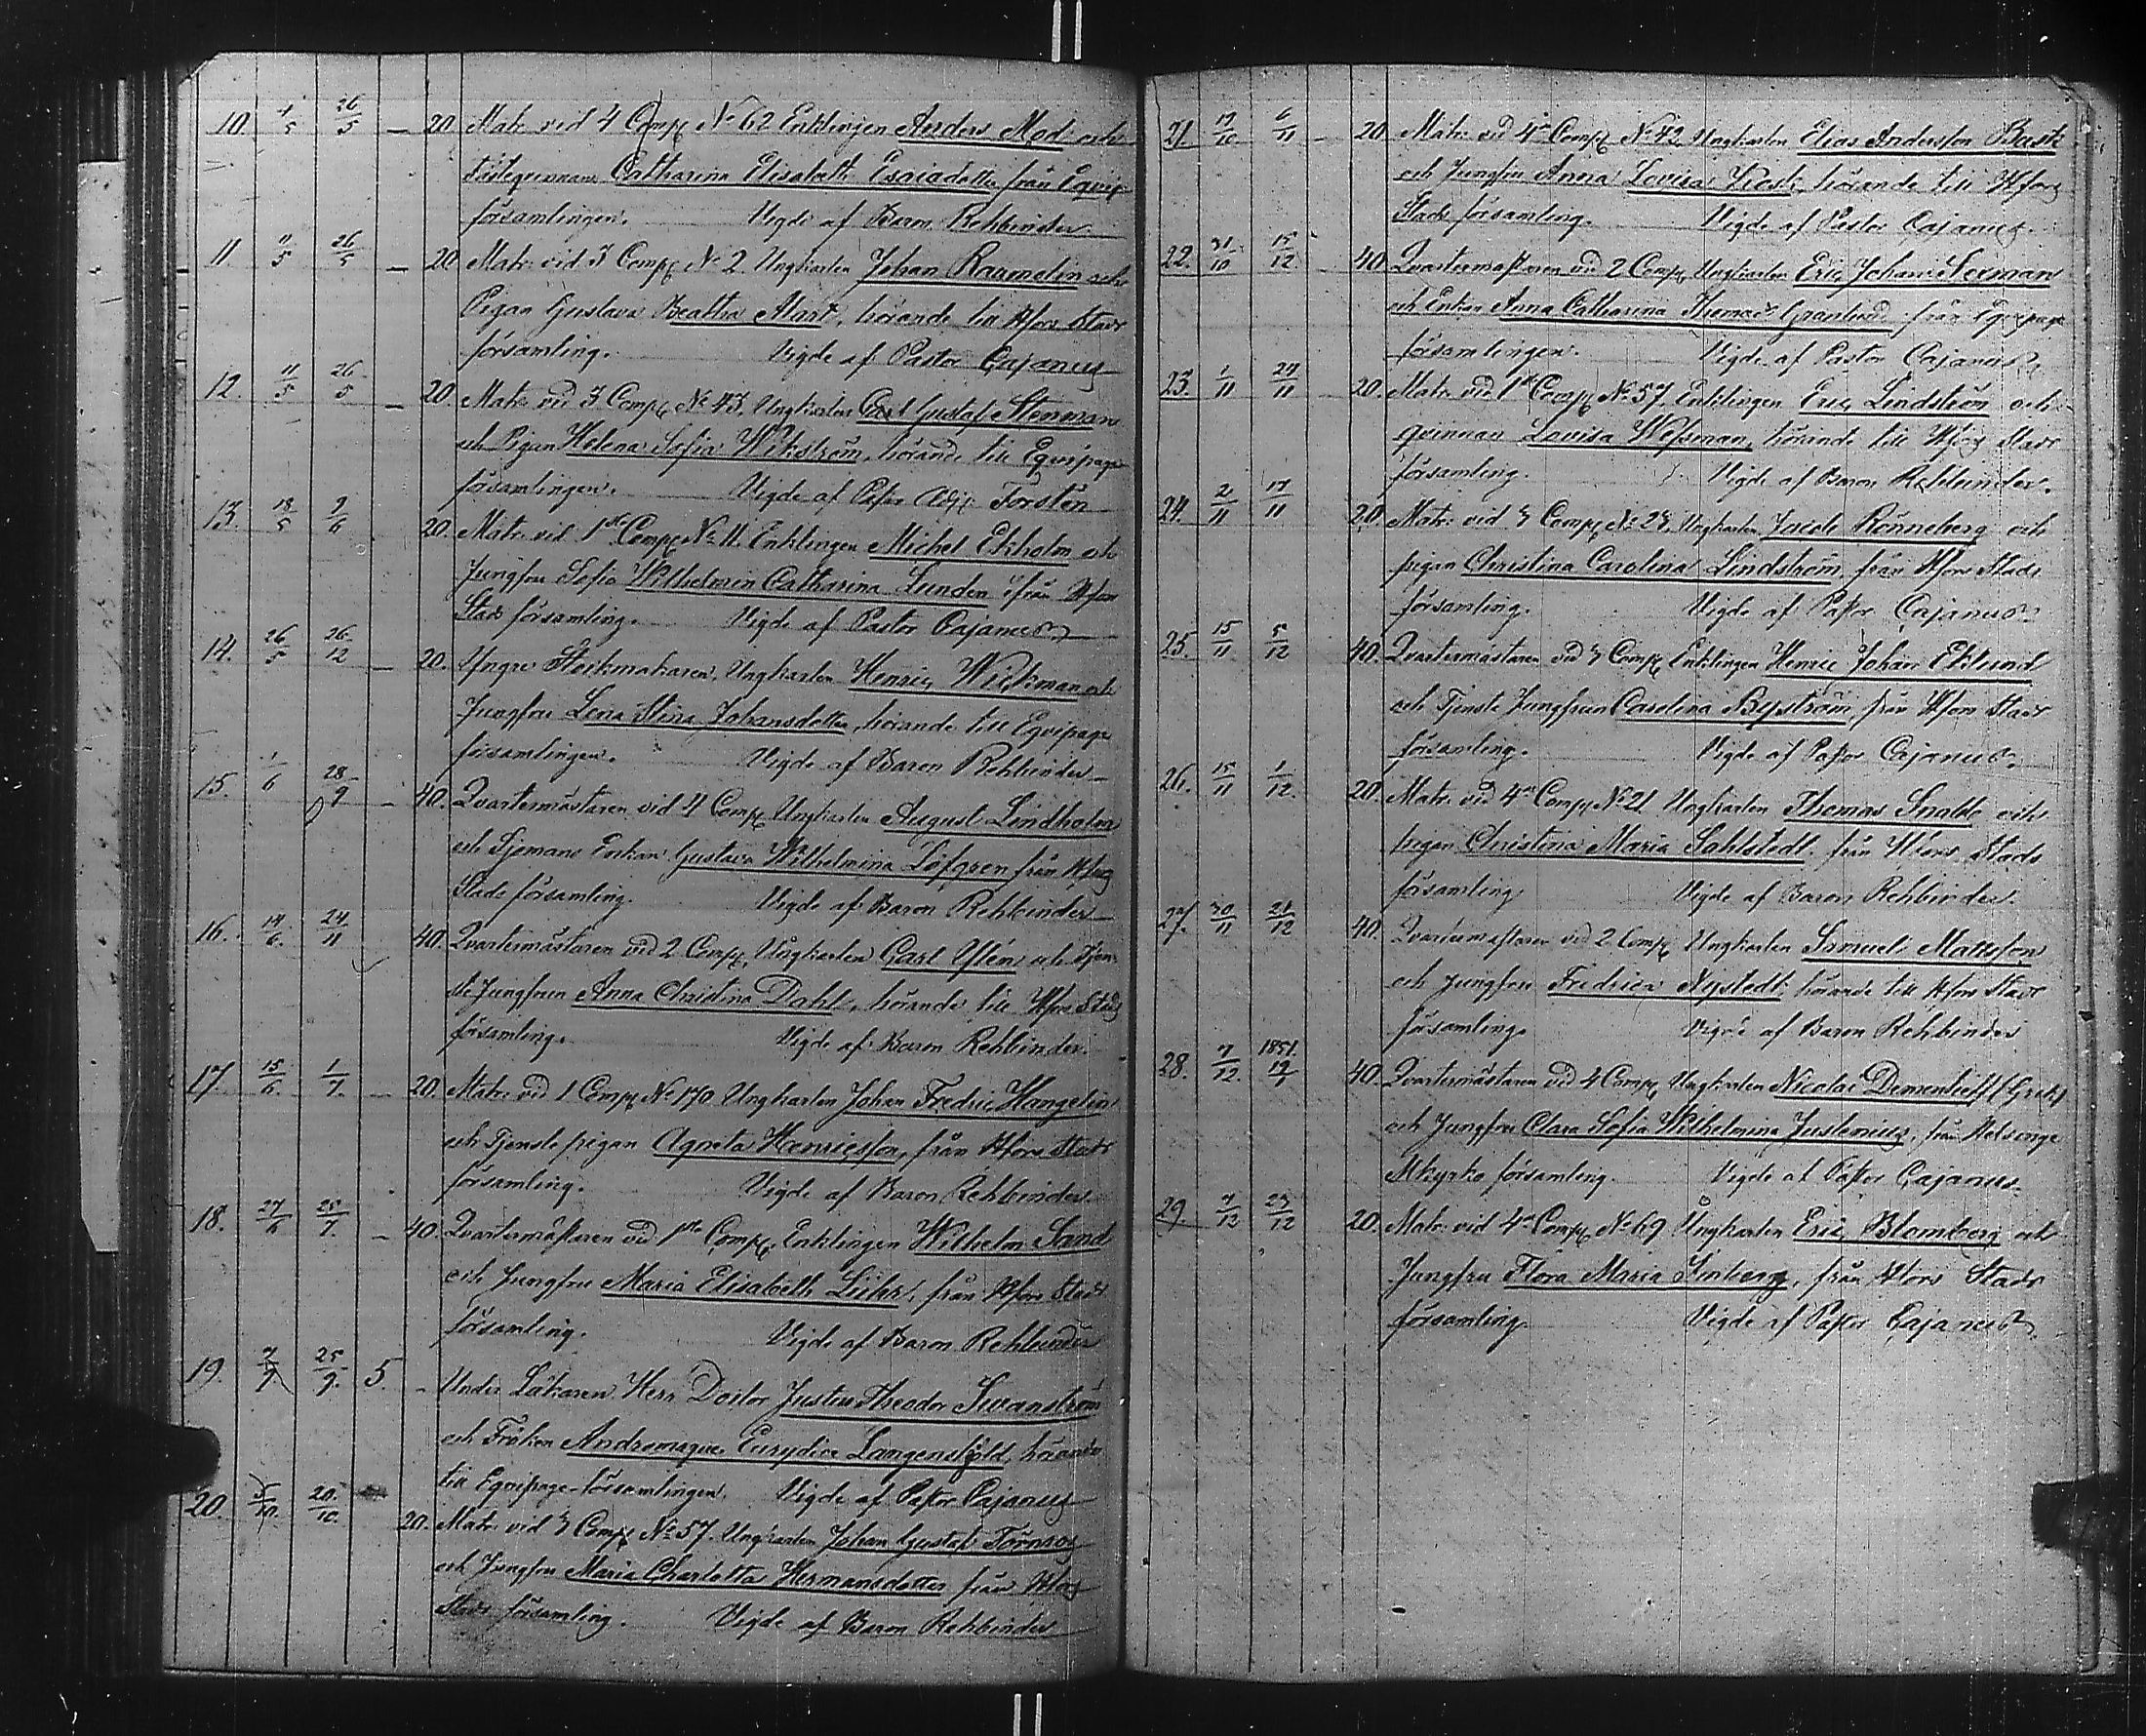 10 4/5 26/5 — 20 Matr. vid 4 Comp. No 62 Enklingen Anders Mod och
Fästeqvinnan Catharina Elisabeth Esaiadotter från Equip.
församlingen. Vigde af Baron Rehbinder
11. 11/5 26/5 — 20 Matr. vid 3 Comp. No 2. Ungkarlen Johan Raumelin och
Pigan Gustava Beattra Alart, hörande till Hfors Stads
församling. Vigde af Pastor Cajanus
12. 11/5 26/5 — 20. Matr. vid 3 Comp. No 43. Ungkarlen Carl Gustaf Stenman
och Pigan Helena Sofia Wikström, hörande till Equipage
församlingen. Vigde af Pastor Adj. Forstén
13. 18/5 9/6 20. Matr. vid 1sta Comp. No 11. Enklingen Michel Ekholm och
Jungfru Sofia Wilhelmin Catharina Lundén ifrån Hfors
Stads församling. Vigde af Pastor Cajanus
14. 26/5 26/12 — 20. Yngre Ungkarlen Henric Wickman och
Jungfru Lena Stina Johansdotter, hörande till Eqvipage
församlingen. Vigde af Baron Rehbinder
15. 1/6 28/9 — 40. Qvartermästaren vid 4 Comp. Ungkarlen August Lindholm
och Sjömans Enkan Gustava Wilhelmina Löfgren från Hfors
Stads församling. Vigde af Baron Rehbinder
16. 14/6 24/11 40. Qvartermästaren vid 2 Comp. Ungkarlen Carl Ylén och Tjen-
ste Jungfrun Anna Christina Dahl, hörande till Hfors Stads
församling. Vigde af Baron Rehbinder.
17. 15/6 1/7. — 20. Matr. vid 1 Comp. No 170 Ungkarlen Johan Fredric Hangelin
och Tjenste pigan Agneta Henricsson, från Hfors Stads
församling. Vigde af Baron Rehbinder.
18. 27/6 25/7. — 40. Qvartermästaren vid 1sta Comp. Enklingen Wilhelm Sand
och Jungfru Maria Elisabeth Lühr, från Hfors Stads
församling. Vigde af Baron Rehbinder
19. 7/9 25/9. 5. — Under Läkaren Herr Doctor Justus Theodor Swanström
och Fröken Andromaque Eurydice Langenskjöld, hörande
till Eqvipage församlingen. Vigde af Pastor Cajanus
20. 5/10. 20/10. 20. Matr. vid 3 Comp. No 57. Ungkarlen Johan Gustaf Törnroos
och Jungfru Maria Charlotta Hermansdotter från Hfors
Stads församling. Vigde af Baron Rehbinder
21. 17/10 6/11 — 20. Matr. vid 4de Comp. No 42 Ungkarlen Elias Andersson Bask
och Jungfru Anna Lovisa hörande till Hfors
Stads församling. Vigde af Pastor Cajanus.
22. 31/10 15/12. — 40. Qvartermästaren vid 2 Comp. Ungkarlen Eric Johan Nexman
och Enkan Anna Catharina Thomasd. Granlund från Eqvipage
församlingen. Vigde af Pastor Cajanus
23. 1/11 27/11 — 20. Matr. vid 1sta Comp. No 57 Enklingen Eric Lindström och
qvinnan Lovisa Wessman, hörande till Hfors Stads
församling. Vigde af Baron Rehbinder.
24. 2/11 17/11 20. Matr. vid 3 Comp. No 23. Ungkarlen Jacob Rönneberg och
pigan Christina Carolina Lindström, från Hfors Stads
församling. Vigde af Pastor Cajanus.
25. 15/11 5/12 40. Qvartermästaren vid 3 Comp. Enklingen Henric Johan Eklund
och Tjenste Jungfrun Carolina Byström, från Hfors Stads
församling. Vigde af Pastor Cajanus.
26. 15/11 1/12. 20. Matr. vid 4de Comp. No 21 Ungkarlen Thomas Snabb och
pigan Christina Maria Sahlstedt, från Hfors Stads
församling Vigde af Baron Rehbinder.
27. 30/11 21/12 40. Qvartermästaren vid 2 Comp. Ungkarlen Samuel Mattsson
och Jungfru Fredrica Nystedt, hörande till Hfors Stads
församling. Vigde af Baron Rehbinder
28. 7/12. 1851. 19/1 40. Qvartermästaren vid 4 Comp. Ungkarlen Nicolai Dementieff (Grek)
och Jungfru Clara Sofia Wilhelmina Juslenius, från Helsinge
Mkyrko församling. Vigde af Pastor Cajanus.
29. 7/12 23/12 20. Matr. vid 4de Comp. No 69 Ungkarlen Eric Blomberg och
Jungfru Flora Maria Simberg, från Hfors Stads
församling. Vigde af Pastor Cajanus.